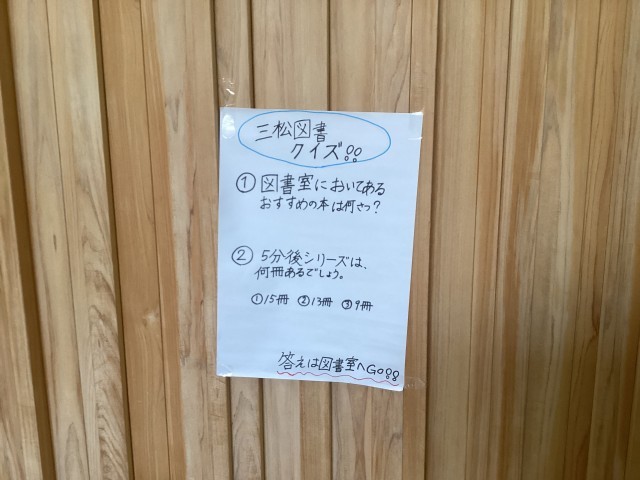 三松図書
クイズ!!
① 図書室においてある
おすすめの本は何さつ?
② 5分後シリーズは、
何冊あるでしょう。
①15冊 ②13冊 ③9冊
答えは図書室へGo!!